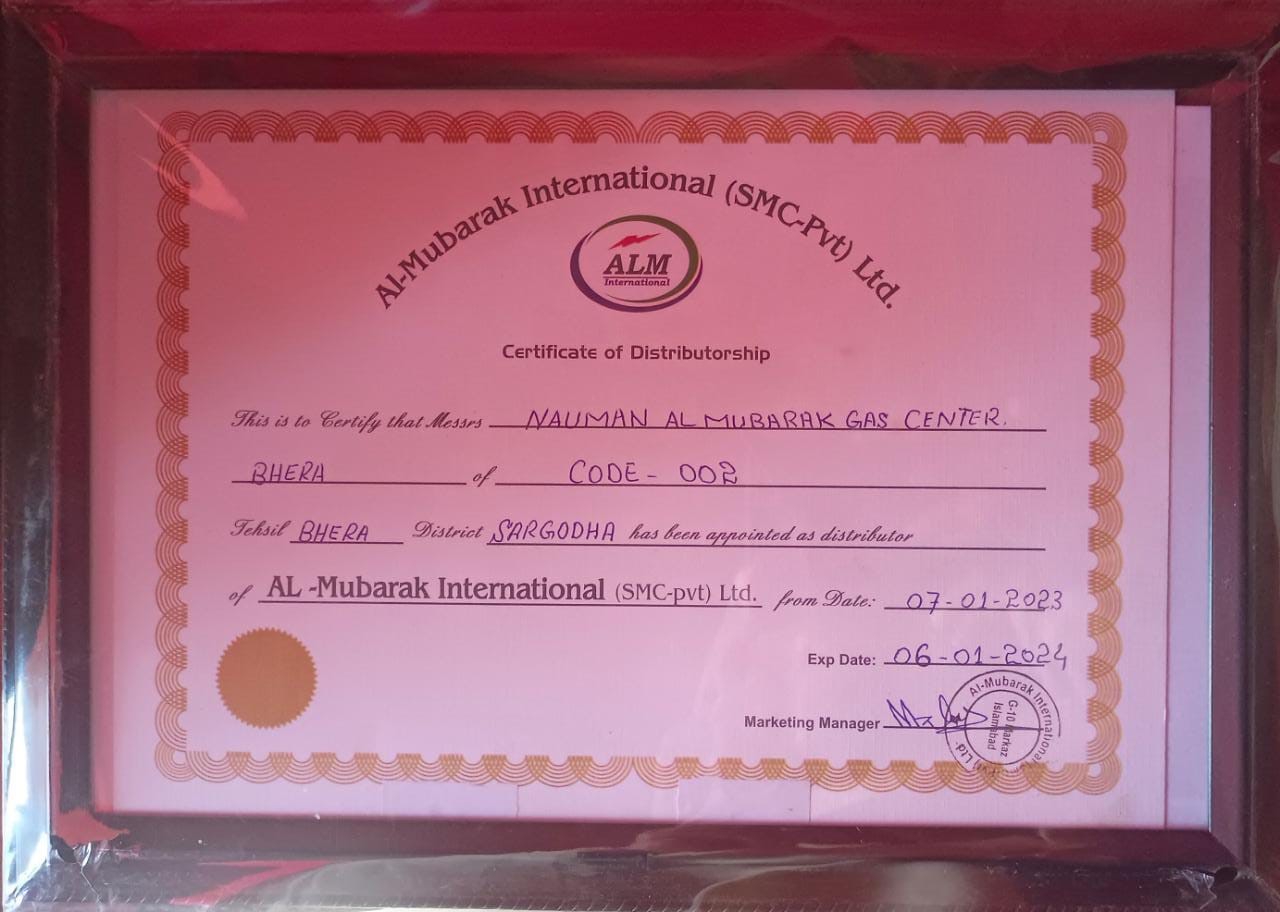 Al-Mubarak International (SMC-Pvt) Ltd.
ALM
International
Certificate of Distributorship
This is to Certify that Messrs NAUMAN AL MUBARAK GAS CENTER.
BHERA of CODE - 002
Tehsil BHERA District SARGODHA has been appointed as distributor
of AL -Mubarak International (SMC-pvt) Ltd. from Date: 07-01-2023
Exp Date: 06-01-2024
Marketing Manager
Al-Mubarak International Ltd.
G-10 Markaz
Islamabad